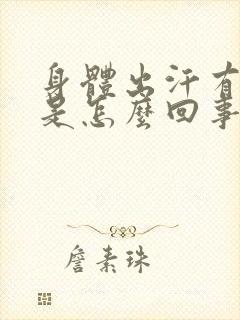 身體出汗有
是怎麼回事
詹素珠